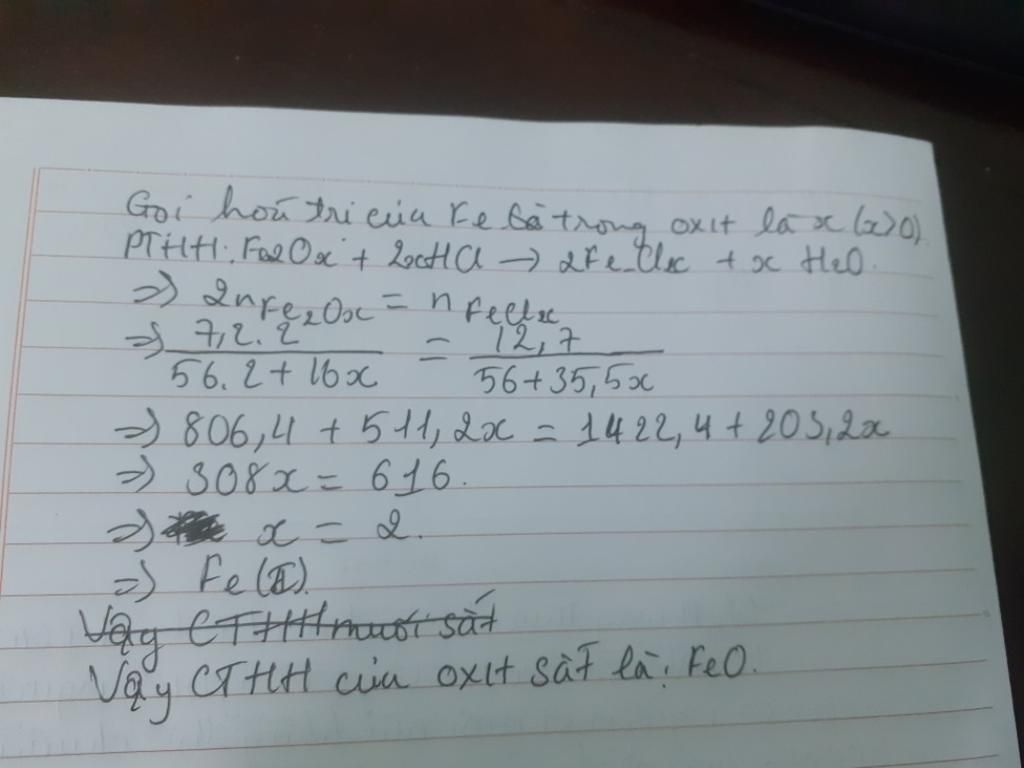 Gọi hoá trị của Fe trong oxit là x (x>0).
PTHH: Fe2Ox + 2xHCl → 2FeClx + x H2O.
=> 2nFe2Ox = nFeClx
=> 7,2.2 / 56.2+16x = 12,7 / 56+35,5x
=> 806,4 + 511,2x = 1422,4 + 203,2x
=> 308x = 616.
=> x = 2.
=> Fe(II).
Vậy CTHH muối sắt
Vậy CTHH của oxit sắt là: FeO.